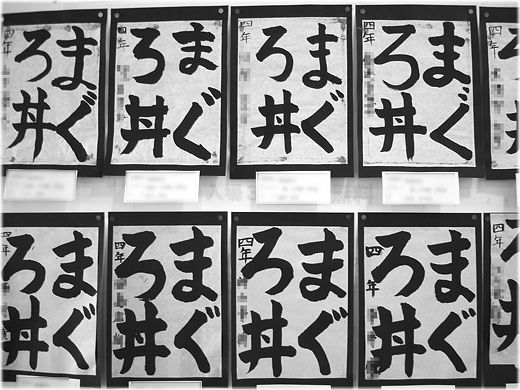 まぐ
ろ丼
四年
まぐ
ろ丼
四年
まぐ
ろ丼
四年
まぐ
ろ丼
四年
四年
まぐ
ろ丼
四年
まぐ
ろ丼
四年
まぐ
ろ丼
四年
まぐ
ろ丼
四年